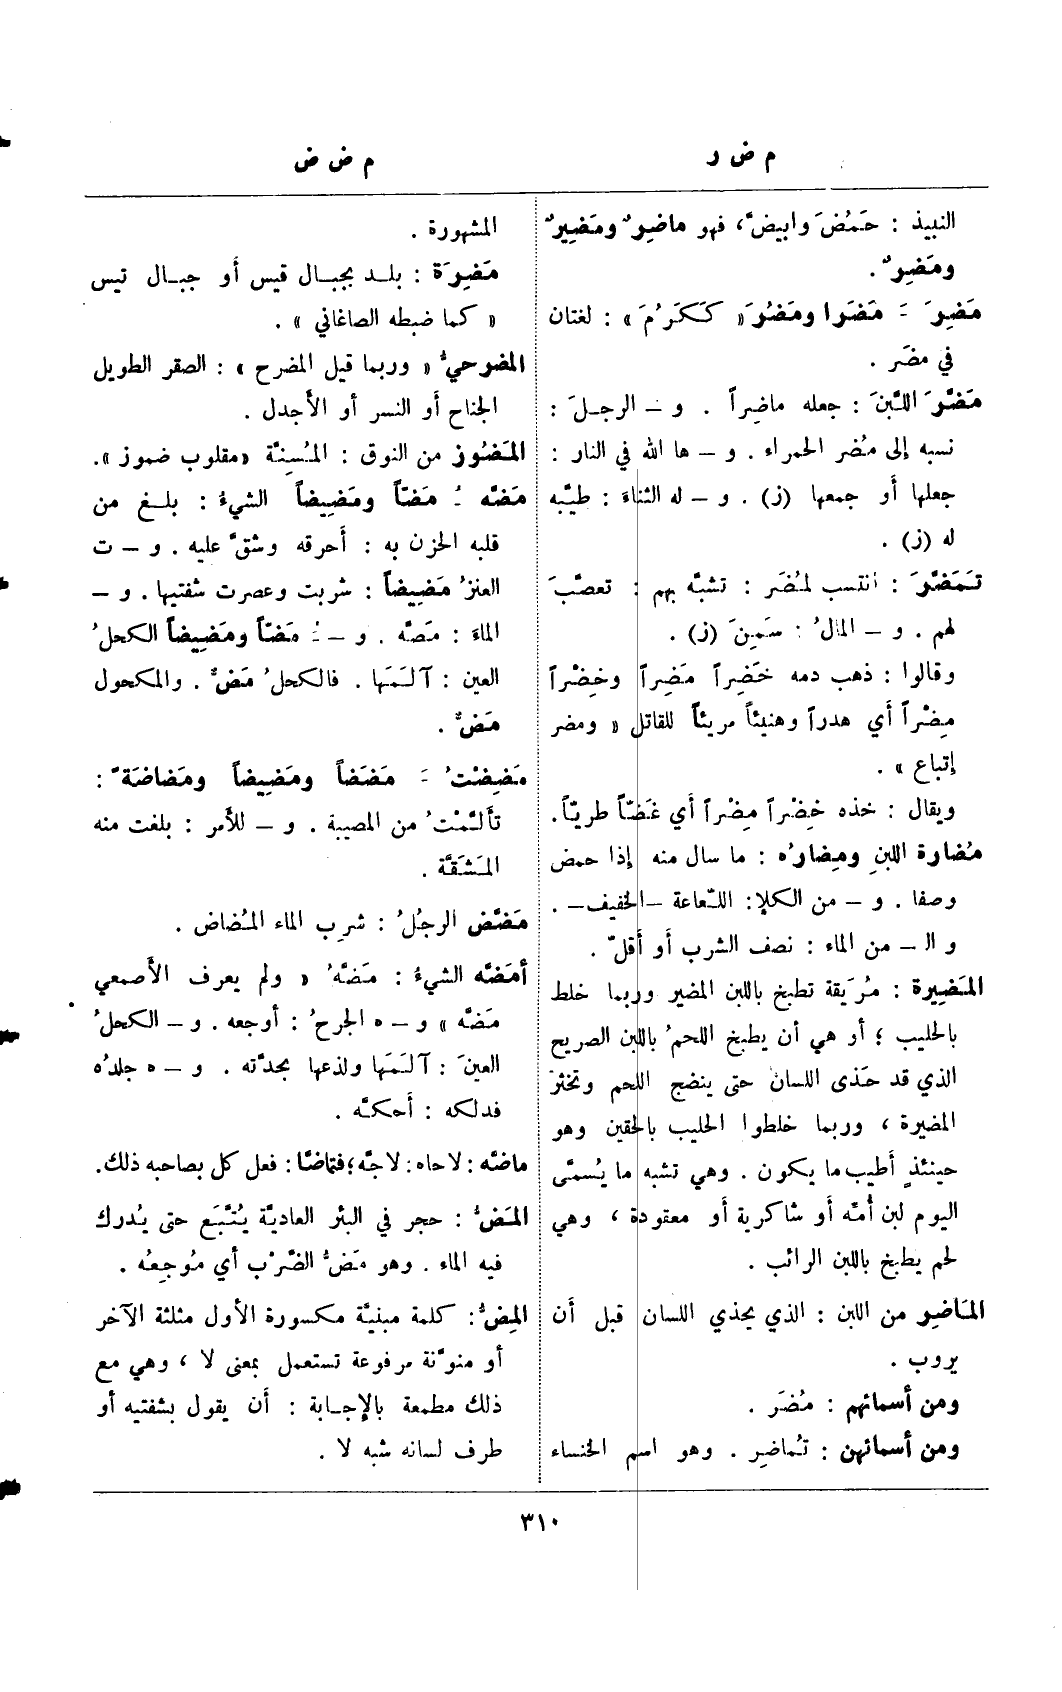 م ض ر
م ض ض
النبيذ : حَمُضَ وابيضَّ، فهو ماضِرٌ ومَضِيرٌ
ومَضِرٌ.
مَضِرَ َ مَضَرا ومَضُرَ « كَكَرُمَ » : لغتان
في مضَر .
مَضَّرَ اللبَنَ : جعله ماضِراً . و – الرجلَ :
نسبه إلى مُضر الحمراء . و – ها الله في النار :
جعلها أو جمعها (ز) . و – له الثناءَ : طيَّبه
له (ز) .
تَمَضَّرَ : انتسب لمُضَر : تشبَّه بهم : تعصَّبَ
لهم . و – المالُ : سَمِنَ (ز) .
وقالوا : ذهب دمه خَضِراً مَضِراً وخِضْراً
مِضْراً أي هدراً وهنيئاً مريئاً للقاتل « ومضر
إتباع » .
ويقال : خذه خِضْراً مِضْراً أي غَضّاً طريّاً.
مُضارة اللبنِ ومِضارُه : ما سال منه إذا حمض
وصفا . و – من الكلإ: اللّعاعة –الخفيف– .
و الـ – من الماء : نصف الشرب أو أقلّ .
المَضِيرة : مُرَيقة تطبخ باللبن المضير وربما خلط
بالحليب ؛ أو هي أن يطبخ اللحمُ باللبن الصريح
الذي قد حَذى اللسانَ حتى ينضج اللحم وتخثرَ
المضيرة ، وربما خلطوا الحليب بالحقين وهو
حينئذٍ أطيب ما يكون . وهي تشبه ما يُسمَّى
اليوم لبن أمّه أو شاكرية أو معقودة ، وهي
لحم يطبخ باللبن الرائب .
المَاضِر من اللبن : الذي يحذي اللسان قبل أن
يروب .
ومن أسمائهم : مُضَر .
ومن أسمائهن : تُماضِر . وهو اسم الخنساء
المشهورة .
مَضِرَة : بلد بجبال قيس أو جبال تيس
« كما ضبطه الصاغاني » .
المضرحيُّ « وربما قيل المضرح » : الصقر الطويل
الجناح أو النسر أو الأجدل .
المَضُوز من النوق : المُسِنِّة «مقلوب ضموز».
مَضّه ُ مَضّاً ومَضِيضاً الشيءُ : بلغ من
قلبه الحزن به : أحرقه وشقَّ عليه . و – ت
العنزُ مَضِيضاً : شربت وعصرت شفتيها . و –
الماءَ : مَصّه . و – ُ مَضّاً ومَضِيضاً الكحلُ
العين : آلَمَها . فالكحلُ مَضٌّ . والمكحول
مَضٌّ .
مَضِضْتُ َ مَضَضاً ومَضِيضاً ومَضاضَةً :
تألَّمْتُ من المصيبة . و – للأمر : بلغت منه
المَشَقَّة .
مَضَّض الرجُلُ : شرِب الماء المُضاض .
أمَضَّه الشيءُ : مَضَّهُ « ولم يعرف الأصمعي
مَضَّه » و – ه الجرحُ : أوجعه . و – الكحلُ
العينَ : آلَمَها ولذعها بحِدَّته . و – ه جلدُه
فدلكه : أحكّه .
ماضّه : لاحاه : لاجّه ؛ فتماضّا : فعل كل بصاحبه ذلك.
المَضُّ : حجر في البئر العاديّة يُتَّبَع حتى يُدرك
فيه الماء . وهو مَضُّ الضَّرْب أي مُوجِعُه .
المِضُّ : كلمة مبنيَّة مكسورة الأول مثلثة الآخر
أو منوّنة مرفوعة تستعمل بمعنى لا ، وهي مع
ذلك مطمعة بالإجابة : أن يقول بشفتيه أو
طرف لسانه شبه لا .
٣١٠